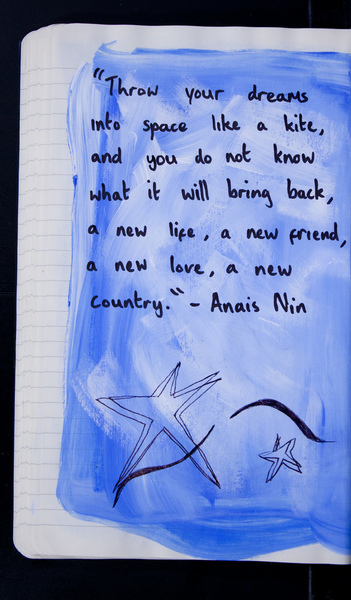 "Throw your dreams
into space like a kite,
and you do not know
what it will bring back,
a new life, a new friend,
a new love, a new
country." - Anais Nin